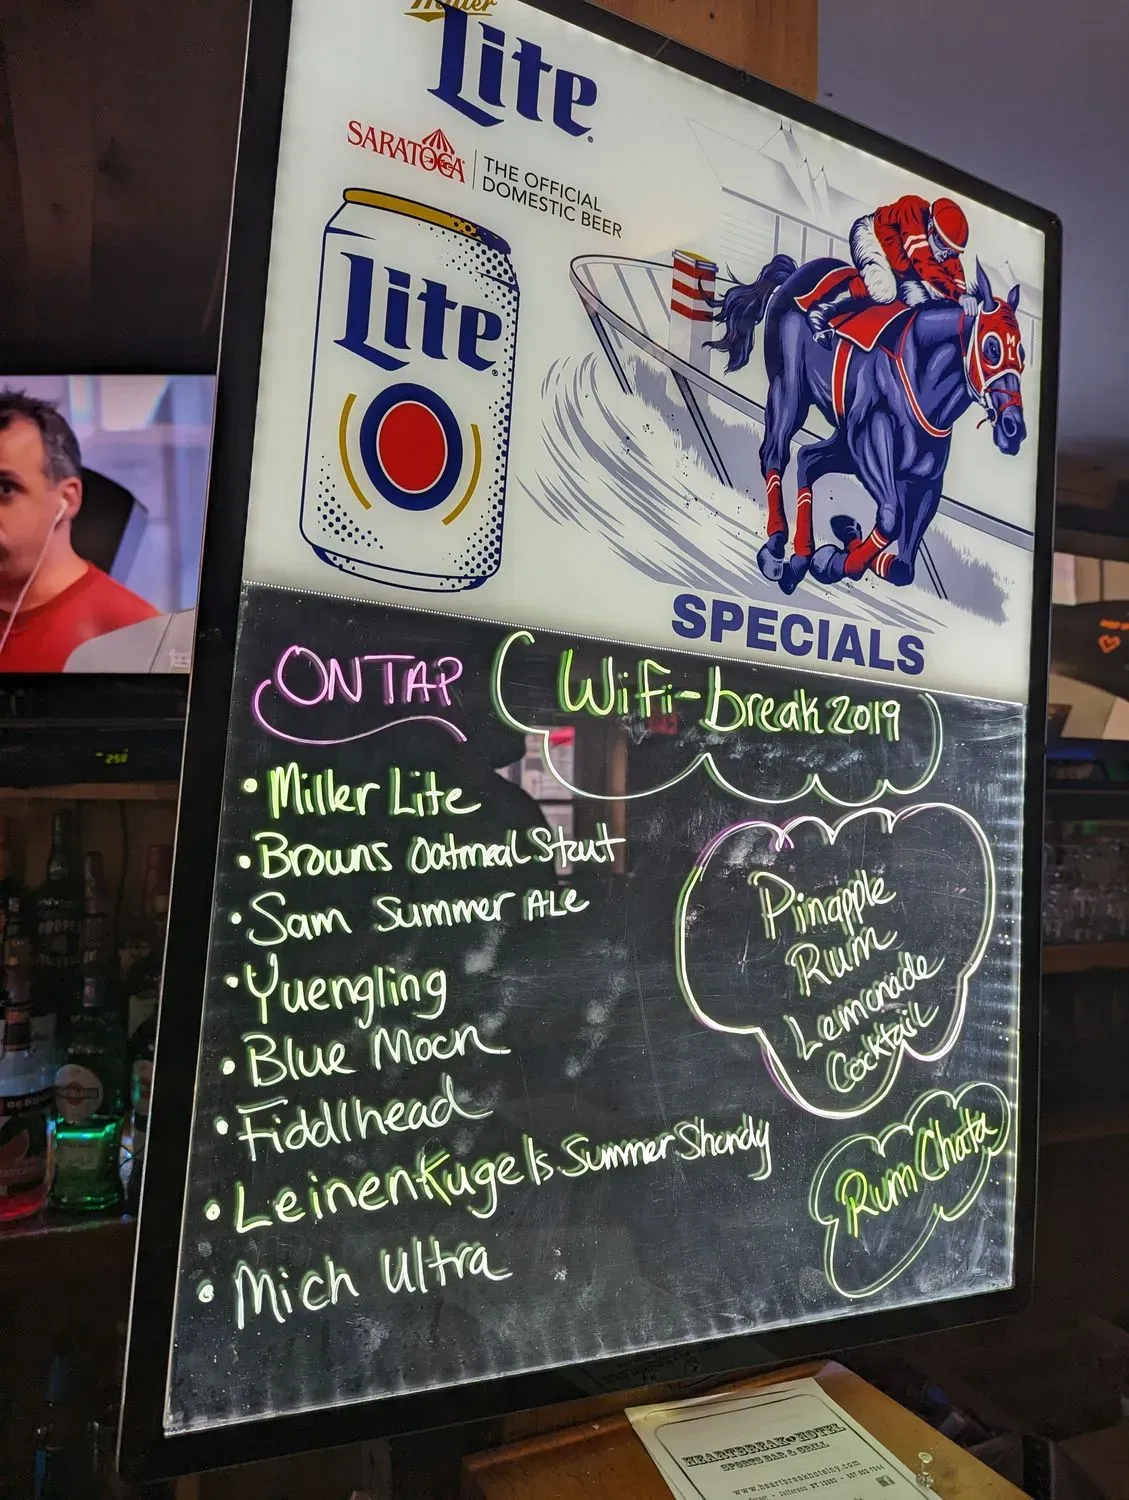 Miller
Lite
SARATOGA
THE OFFICIAL
DOMESTIC BEER
Lite
M
L
SPECIALS
ON TAP
WiFi-break2019
• Miller Lite
• Browns Oatmeal Stout
• Sam Summer Ale
• Yuengling
• Blue Moon
• Fiddlhead
• Leinenkugels Summer Shandy
• Mich Ultra
Pinapple
Rum
Lemonade
Cocktail
Rum Chatta
HEARTBREAK HOTEL
SPORTS BAR & GRILL
www.heartbreakhotelny.com